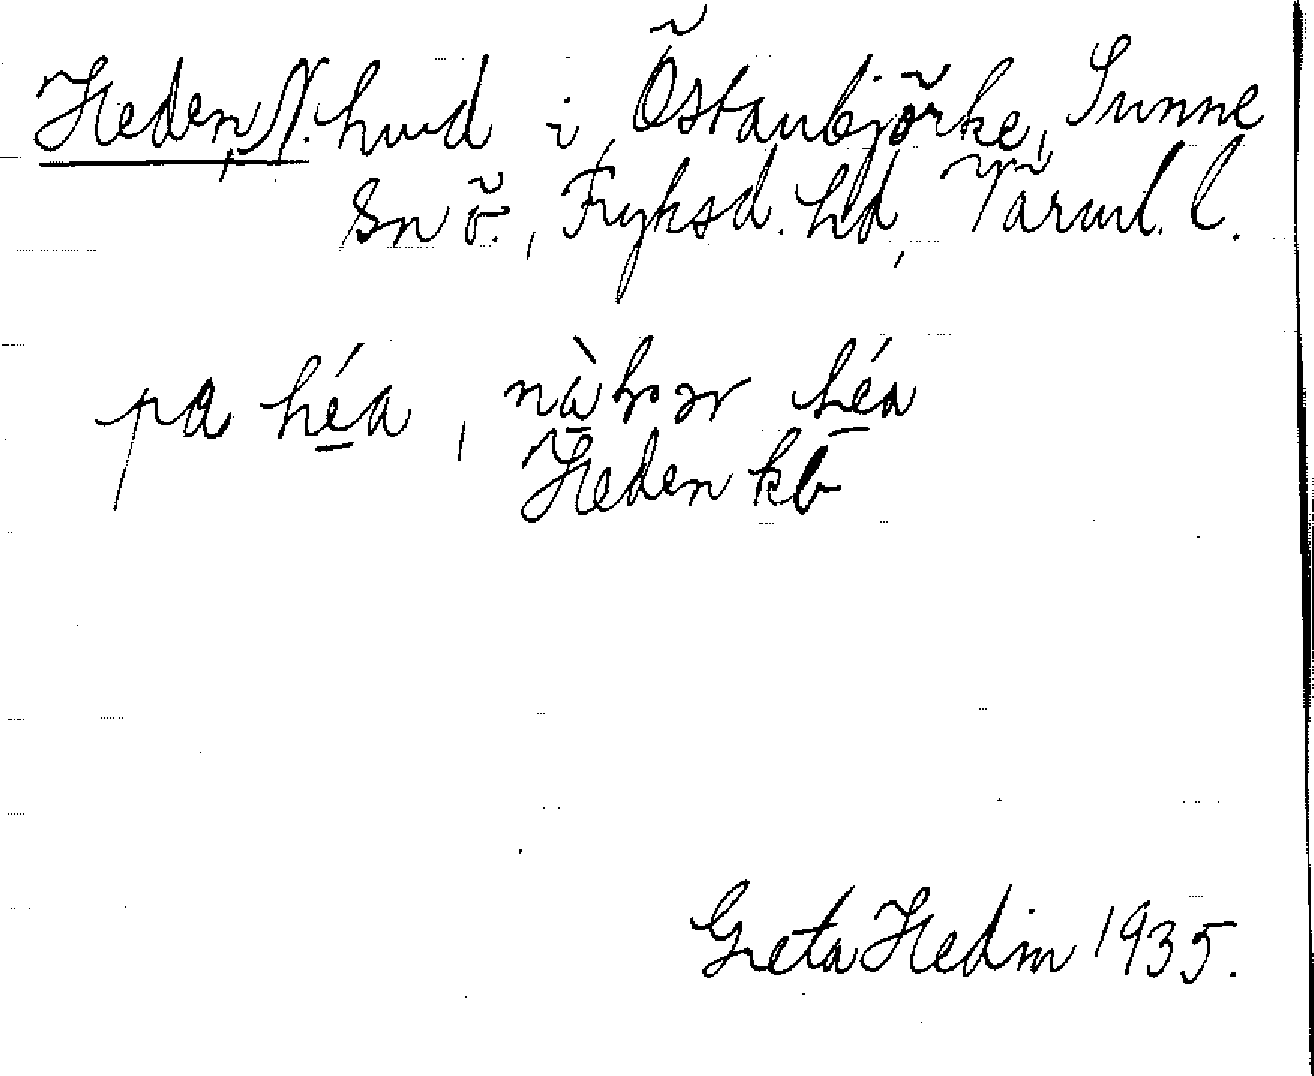 Heden, N. hmd i Östanbjörke, Sunne
sn ö., Fryksd. hd, Värml. l.
pa héa, héa
Heden kb
Greta Hedin 1935.